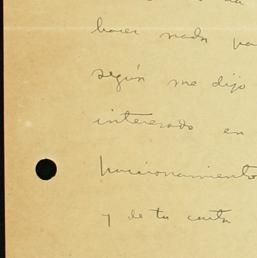 hacer nada pa
según me dijo
interesado en
funcionamiento
y de tu carta